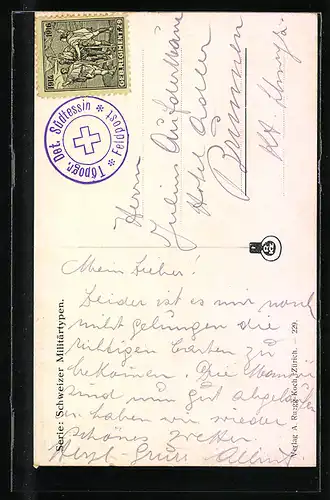 1914 1916
GEB. KOMP. IV/40
* Topogr. Det. Südtessin * Feldpost
Herrn
Julius Auf der Maur
Hotel Adler
Brunnen
Kt. Schwyz
Mein Lieber!
Leider ist es mir noch
nicht gelungen die
richtigen Carten zu
bekommen. Die Manöver
sind nun gut abgelaufen
haben wir wieder
schönes Wetter.
Herzl. Gruss
Serie: Schweizer Militärtypen.
Verlag A. Ruegg-Koch, Zürich. — 229.